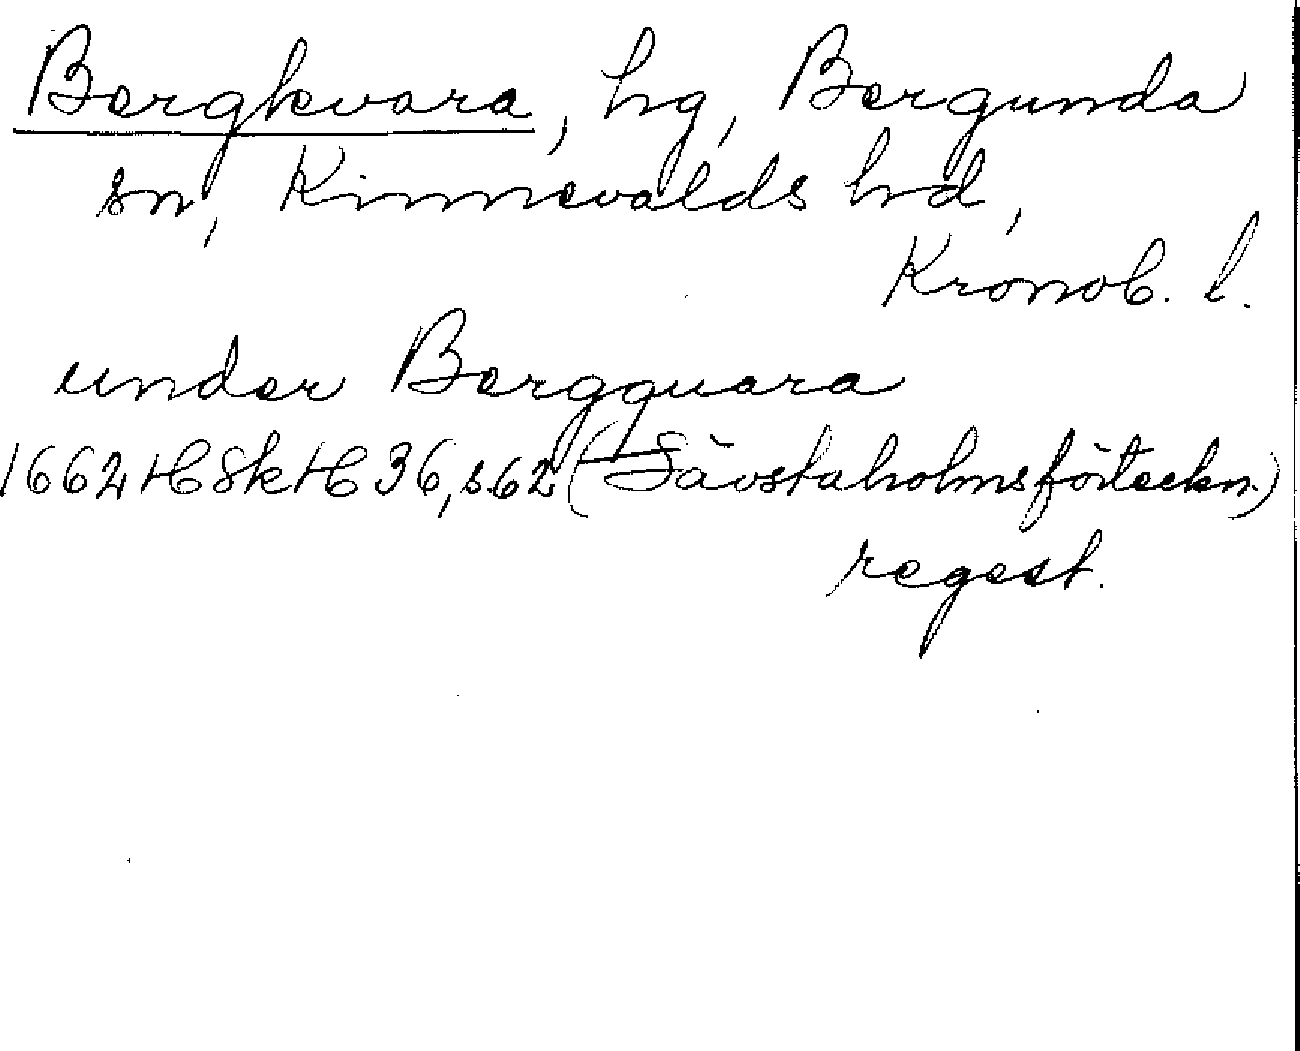 Bergkvara, hg, Bergunda
sn, Kinnevalds hd,
Kronob. l.
under Bergquara
1662 HSkH 36, s. 62 (Sävstaholmsförteckn.)
regest.